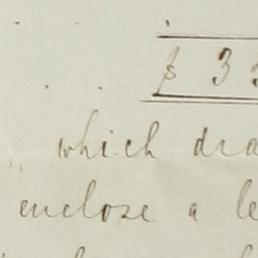 $ 33
which dra
enclose a le